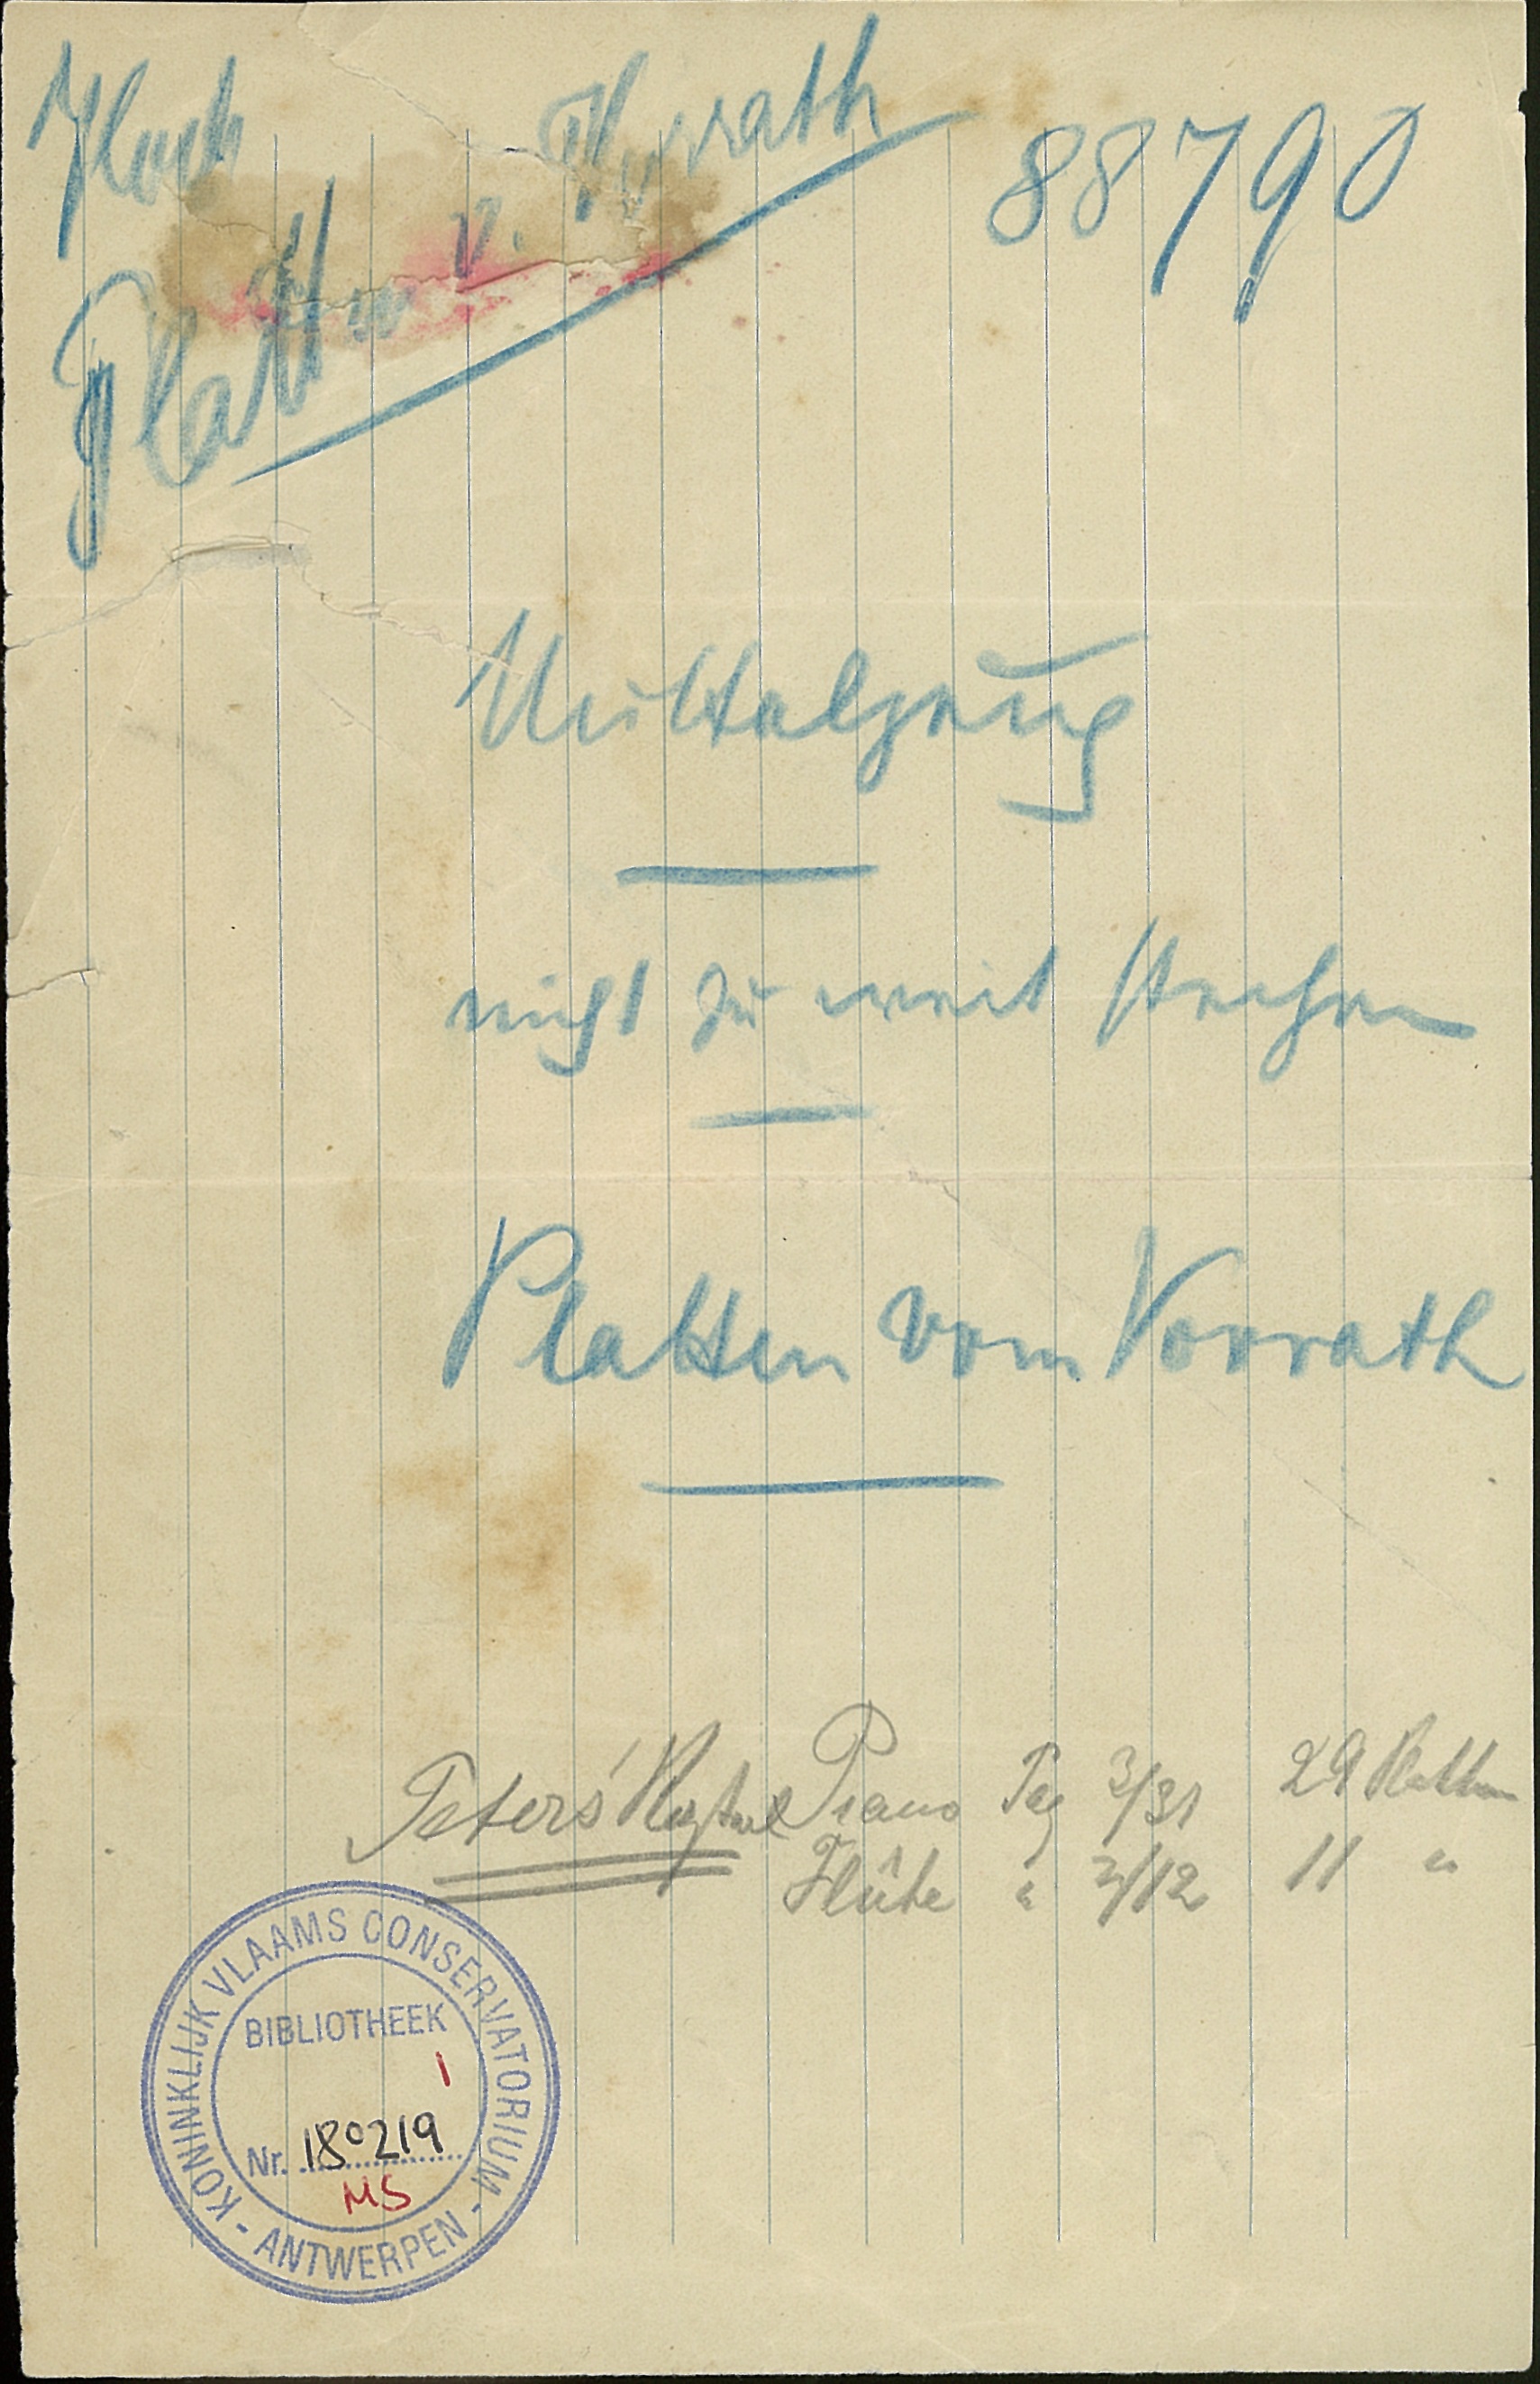 Hoch
Platten v. Vorrath
88790
Mittelgang
nicht zu weit stechen
Platten vom Vorrath
Peters' Piano Pag 3/31 29 Platten
Flûte " 2/12 11 "
KONINKLIJK VLAAMS CONSERVATORIUM - ANTWERPEN -
BIBLIOTHEEK
1
Nr. 180219
MS